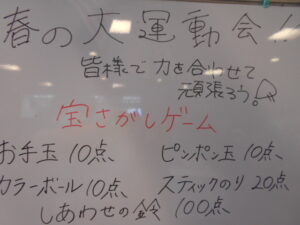 春の大運動会!!
皆様で力を合わせて
頑張ろう。
宝さがしゲーム
お手玉 10点 ピンポン玉 10点
カラーボール 10点 スティックのり 20点
しあわせの鈴 100点